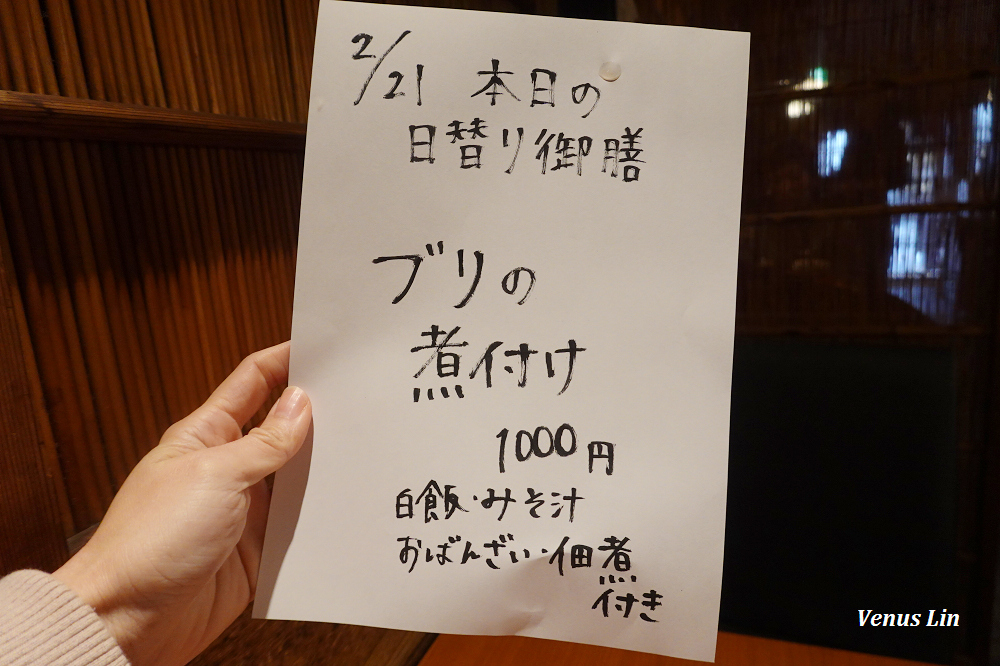 2/21 本日の
日替り御膳
ブリの
煮付け
1000円
白飯・みそ汁
おばんざい・佃煮
付き
Venus Lin